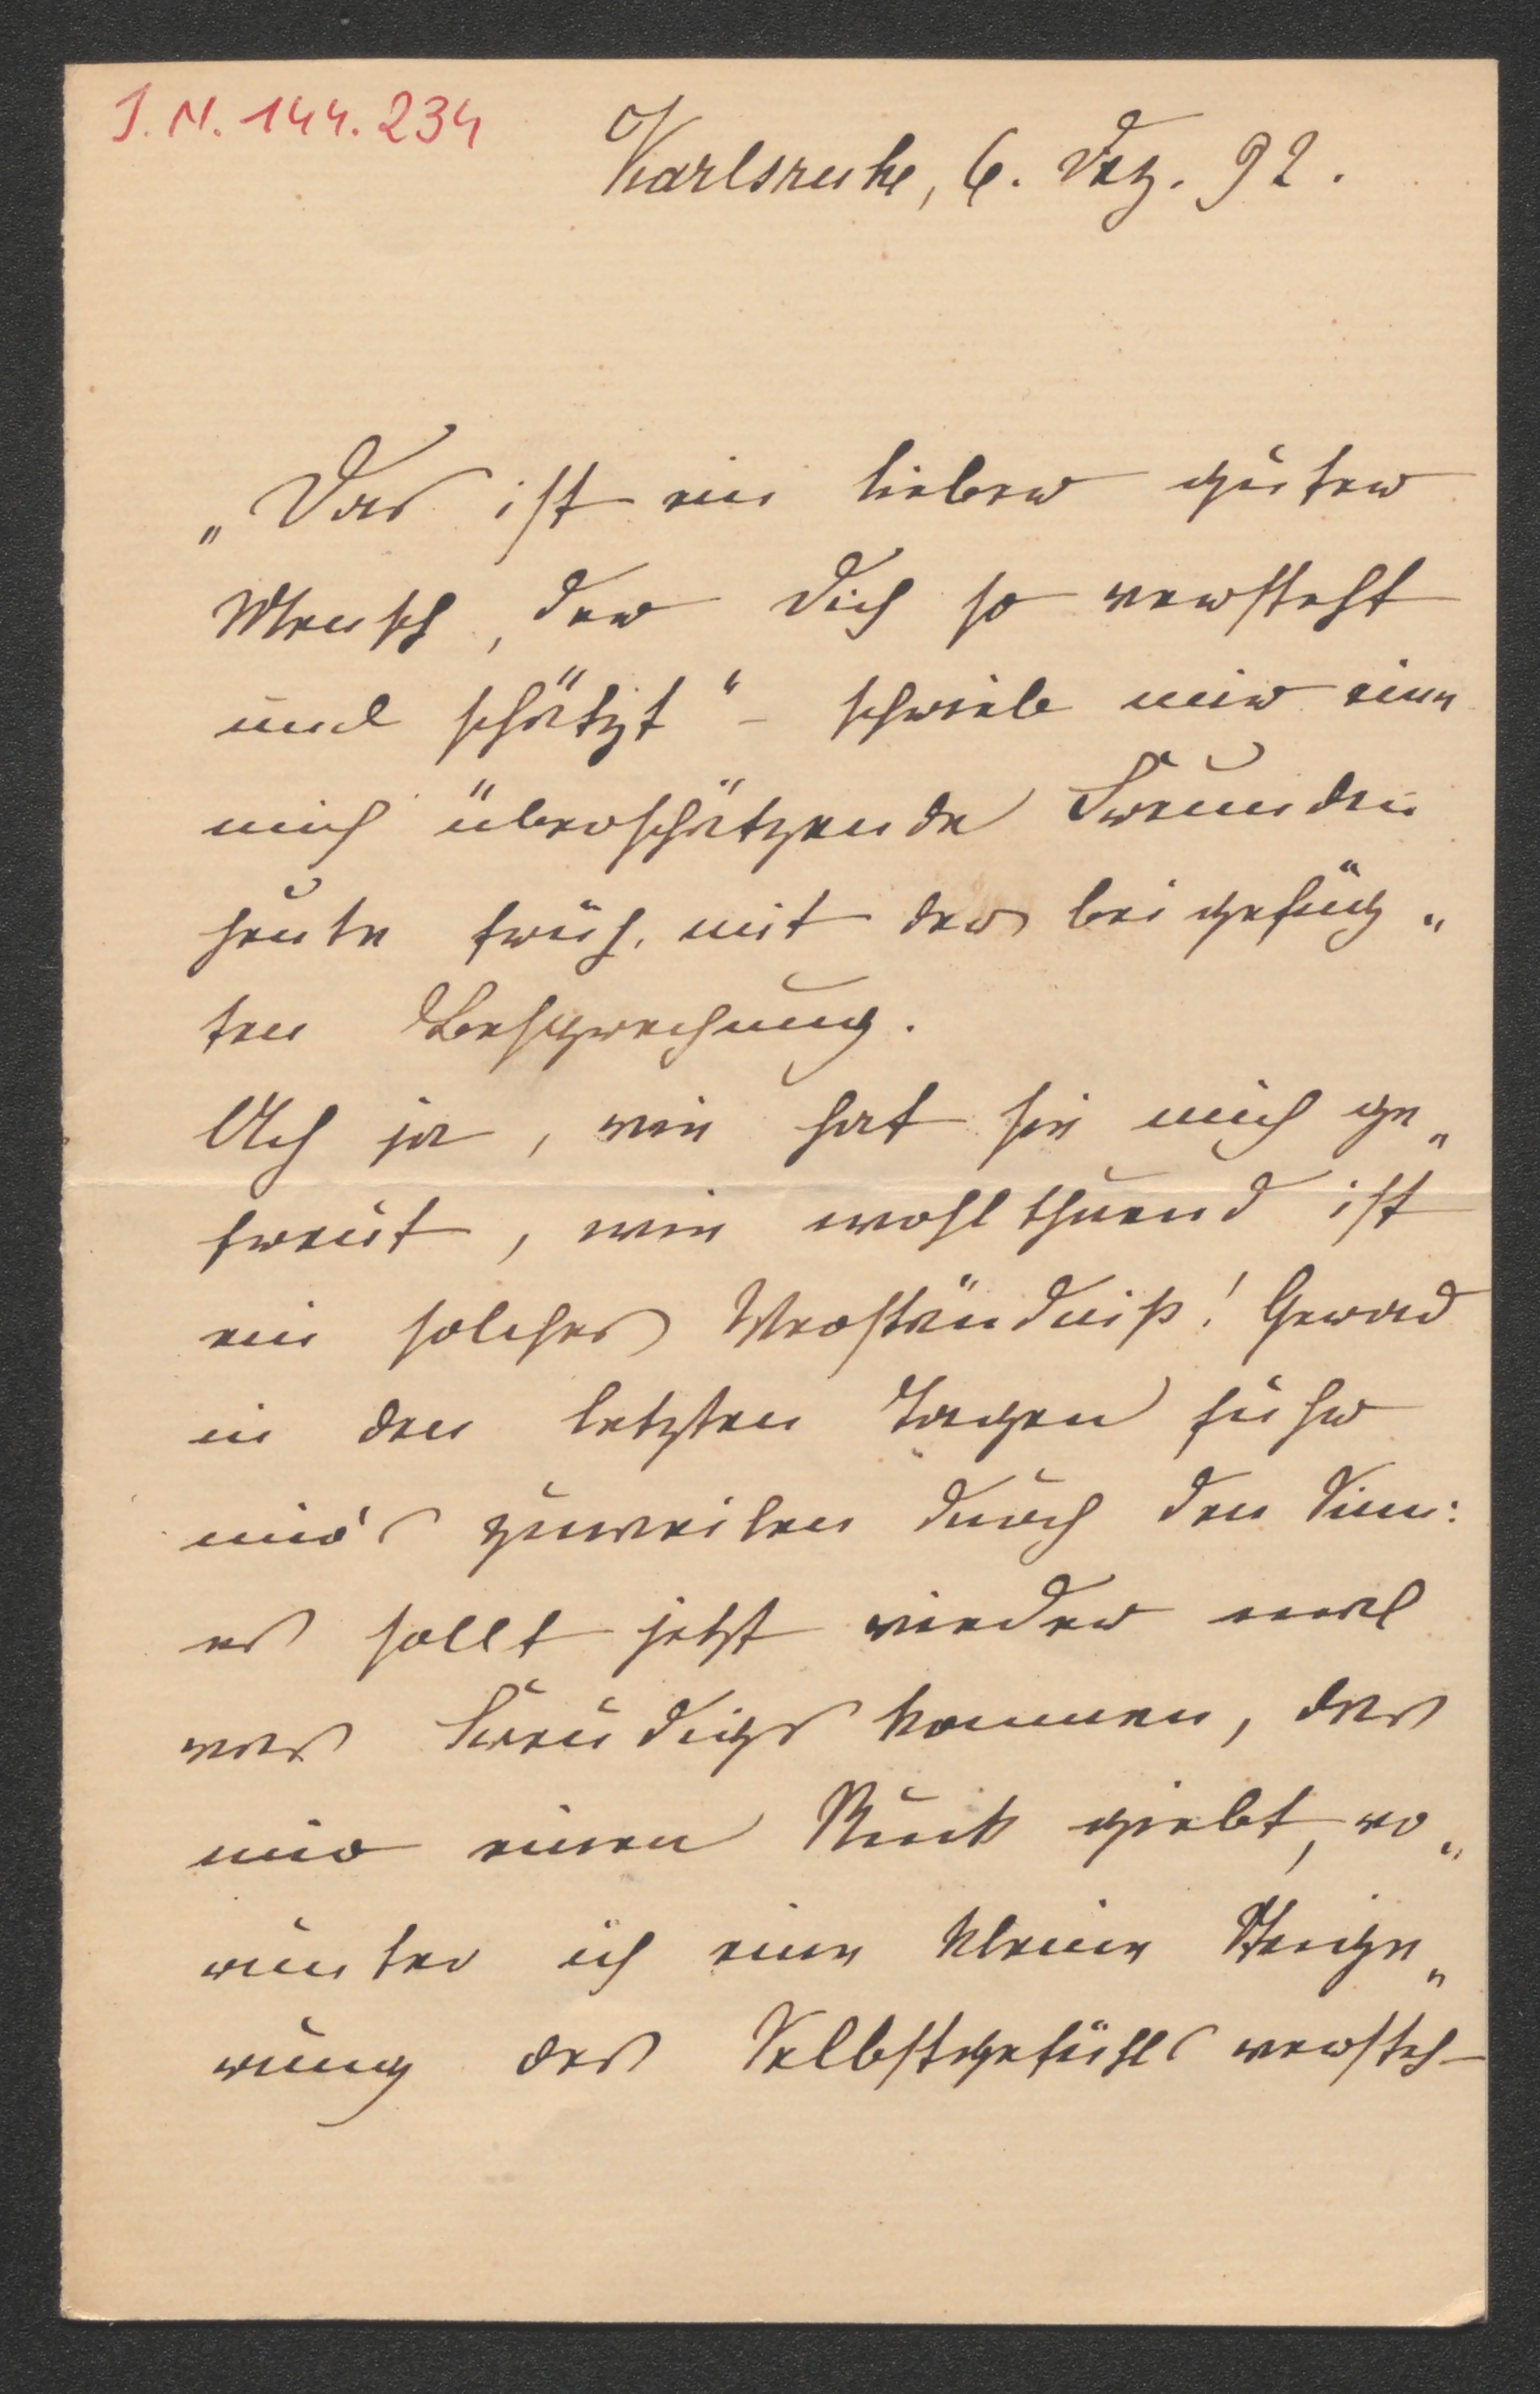 J. N. 144.234
Karlsruhe, 6. Dez. 92.
„Das ist ein lieber guter
Mensch, der Dich so versteht
und schätzt" – schrieb mir eine
mich überschätzende Freundin
heute früh mit der beigefüg„
ten Besprechung.
Ach ja, wie hat sie mich ge„
freut, wie wohlthuend ist
ein solches Verständniß! Gerad
in den letzten Tagen fuhr
mir's zuweilen durch den Sinn:
es sollt jetzt wieder mal
was Freudigs kommen, das
mir einen Ruck giebt, wo„
runter ich eine kleine Steige„
rung des Selbstgefühls versteh –